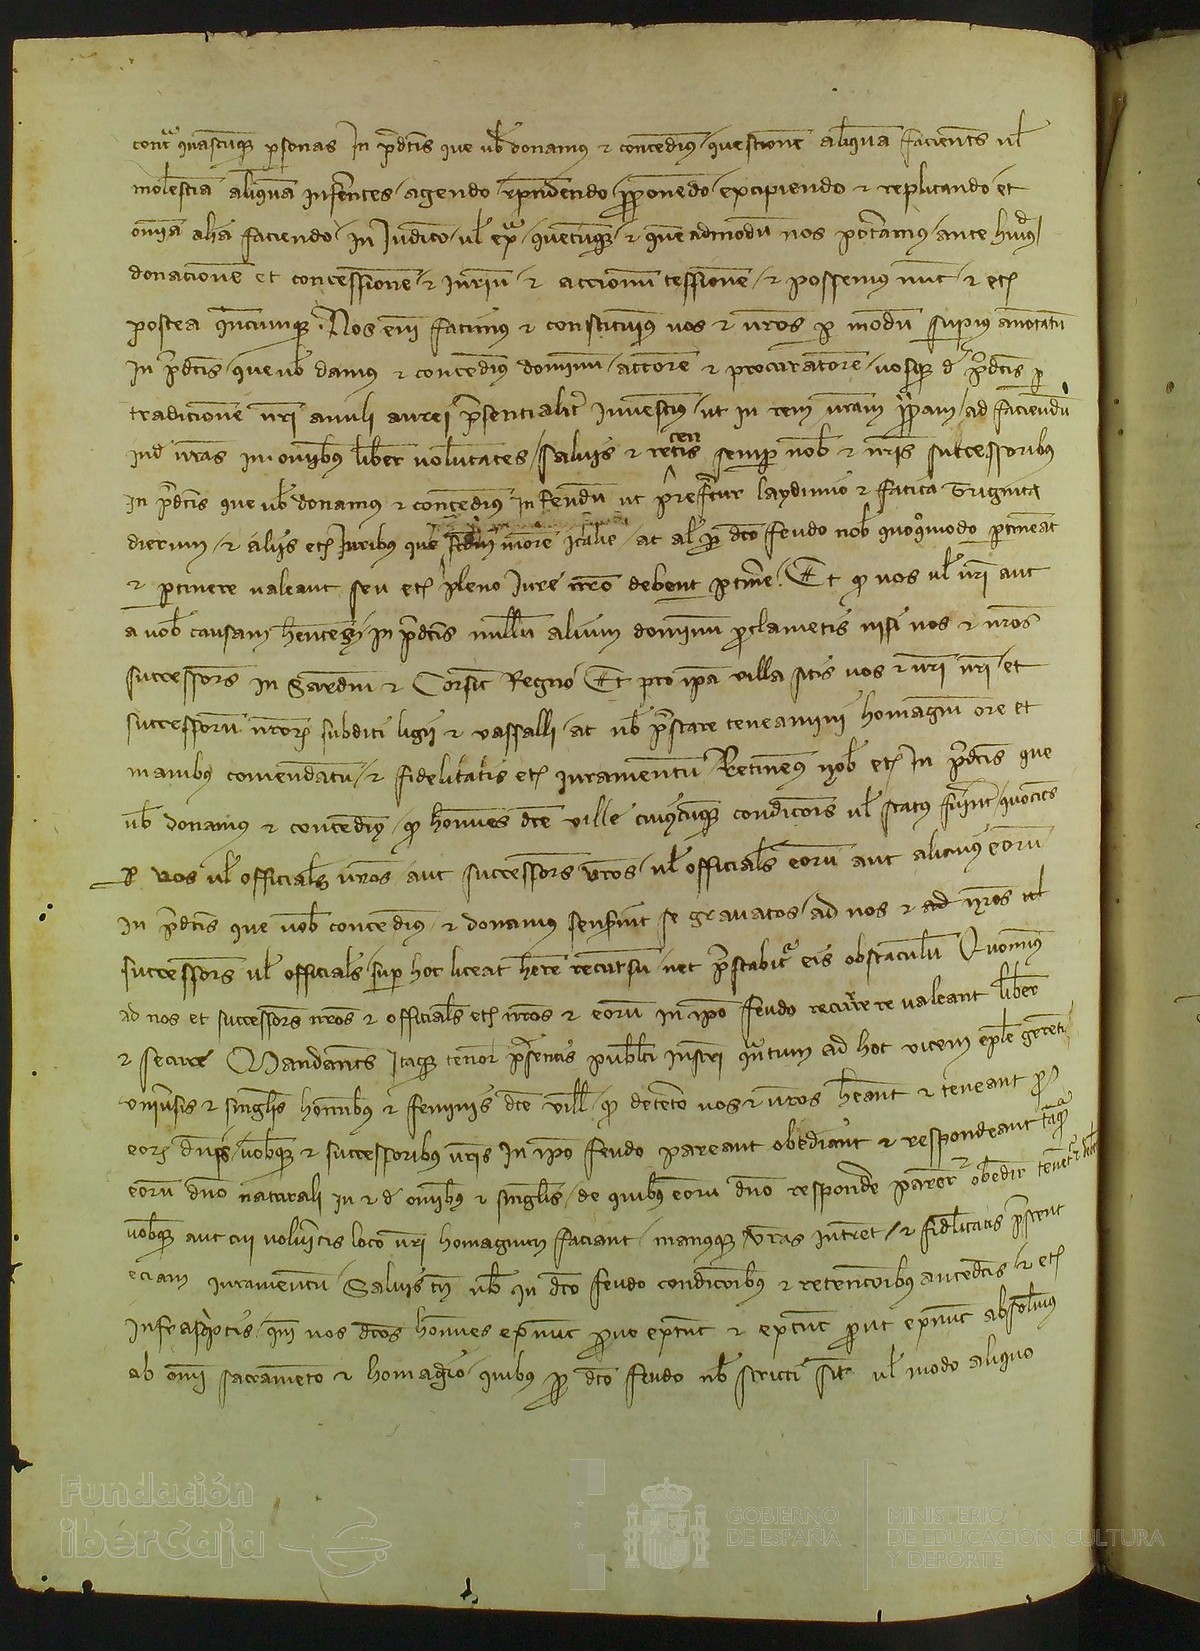 contra quascumque personas in predictis que vobis donamus et concedimus questionem aliquam facientes vel
molestiam aliquam inferentes agendo respondendo proponendo excipiendo et replicando et
omnia alia faciendo in Judicio vel extra quecumque et quemadmodum nos poteramus ante huiusmodi
donacionem et concessionem et Jurium et accionum cessionem et possemus nunc et etiam
postea quandocumque. Nos enim facimus et constituimus vos et vestros per modum superius annotatum
in predictis que vobis damus et concedimus dominum actorem et procuratorem vosque de predictis per
tradicionem nostri anuli aurei presentialiter Investimus ut in rem vestram propriam ad faciendum
inde vestras in omnibus libere voluntates salvis et retentis semper nobis et nostris successoribus
in predictis que vobis donamus et concedimus in feudum ut prefertur laydimio et fatica triginta
dierum et aliis etiam Juribus que secundum morem Italie ac alias pro dicto feudo nobis quoquomodo pertineant
et pertinere valeant seu etiam pleno Jure nostro debent pertinere. Et quod vos vel vestri aut
a vobis causam habentes in predictis nullum alium dominum proclametis nisi nos et nostros
successores in Sardinie et Corsice Regno Et pro ipsa villa sitis vos et vestri nostri et
successorum nostrorum subditi ligii et vassalli ac nobis prestare teneamini homagium ore et
manibus comendatum et fidelitatis etiam iuramentum Retinemus nobis etiam in predictis que
vobis donamus et concedimus quod homines dicte ville cuiuscumque condicionis vel status fuerint quociens
per vos vel officiales vestros aut successores vestros vel officiales eorum aut alicuius eorum
in predictis que vobis concedimus et donamus senserint se gravatos ad nos et ad nostros vel
successores vel officiales super hoc liceat habere recursum nec prestabitur eis obstaculum Quominus
ad nos et successores nostros et officiales etiam nostros et eorum in ipso feudo recurrere valeant libere
et secure Mandantes itaque tenore presentis publici instrumenti quantum ad hoc vicem epistole gerentis
universis et singulis hominibus et feminis dicte ville quod decetero vos et vestros habeant et teneant pro
eorum dominis vobisque et successoribus vestris in ipso feudo pareant obediant et respondeant tamquam
eorum domino naturali in et de omnibus et singulis de quibus eorum domino respondere parere et obedire tenentur et debent
vobisque aut cui volueritis loco vestri homagium faciant manusque vestras intrent et fidelitatis prestent
eciam iuramentum Salvis tamen nobis in dicto feudo condicionibus et retencionibus antedictis et etiam
infrascriptis quoniam nos dictos homines exnunc prout extunc et extunc prout exnunc absolvimus
ab omni sacramento et homagio quibus pro dicto feudo nobis stricti sint vel modo aliquo